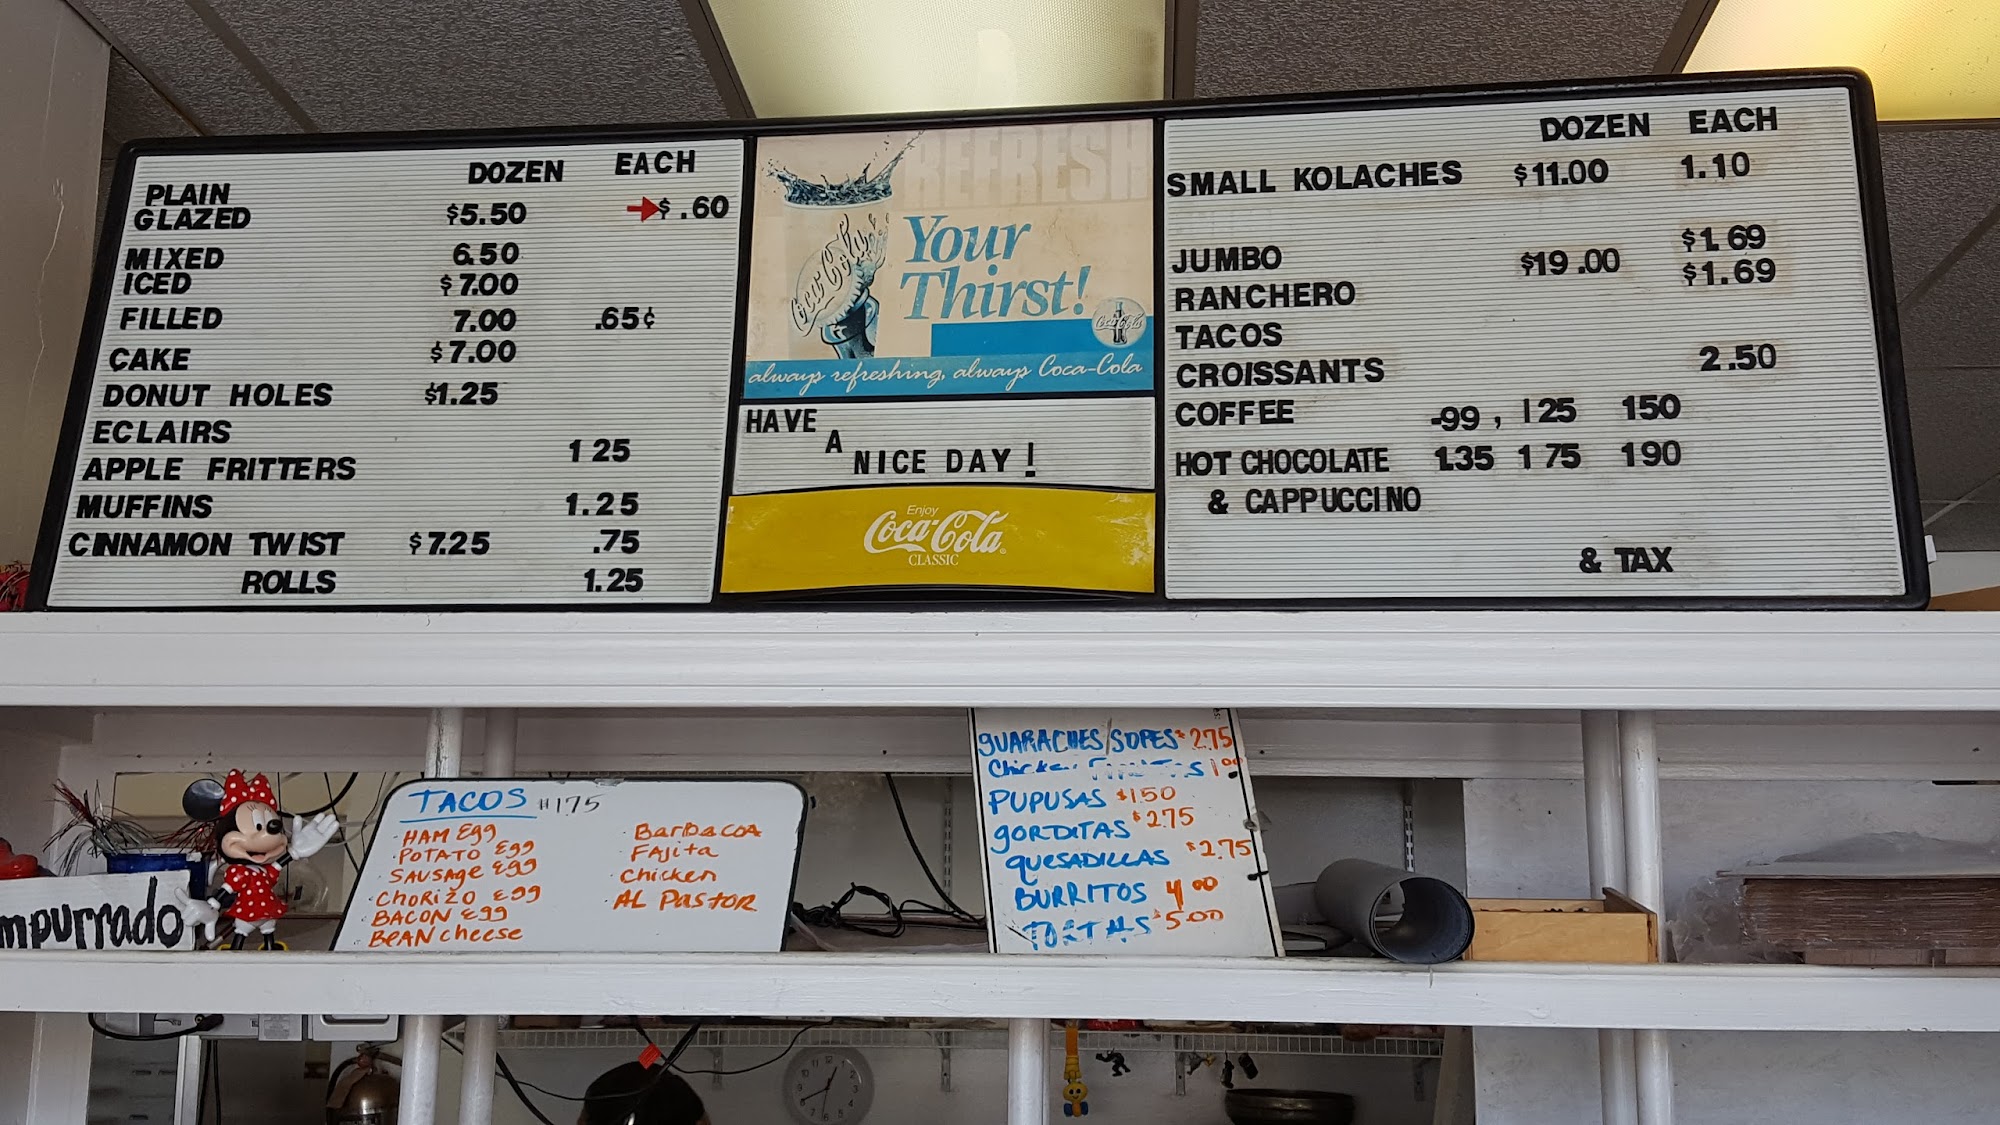 DOZEN EACH
PLAIN
GLAZED $5.50 $ .60
MIXED 6.50
ICED $7.00
FILLED 7.00 .65¢
CAKE $7.00
DONUT HOLES $1.25
ECLAIRS
APPLE FRITTERS 1 25
MUFFINS 1.25
CINNAMON TWIST $7.25 .75
ROLLS 1.25
REFRESH
Your
Thirst!
Coca-Cola
Coca-Cola
always refreshing, always Coca-Cola
HAVE
A
NICE DAY !
Enjoy
Coca-Cola
CLASSIC
DOZEN EACH
SMALL KOLACHES $11.00 1.10
$1.69
JUMBO $19.00 $1.69
RANCHERO
TACOS
CROISSANTS 2.50
COFFEE -99 , 125 150
HOT CHOCOLATE 1.35 1 75 190
& CAPPUCCINO
& TAX
mpurrado
TACOS #1.75
· HAM Egg
· POTATO Egg
· SAUSAge Egg
· CHoRiZO Egg
· BACON Egg
· BeAN cheese
· BarbacoA
· FAjita
· Chicken
· AL PasTOR
gUARACHES/SOPES $2.75
Chicken 1.00
PUPUSAS $1.50
gORDITAS $2.75
QUeSADILLAS $2.75
BURRITOS 4.00
TORTAS $5.00